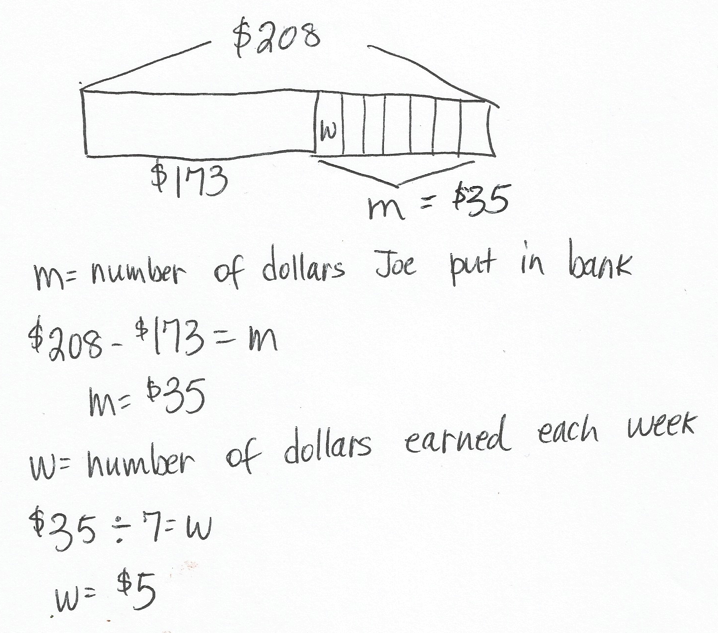 $208
W
$173
m = $35
m= number of dollars Joe put in bank
$208 - $173 = m
m= $35
W= number of dollars earned each week
$35 ÷ 7= W
W= $5